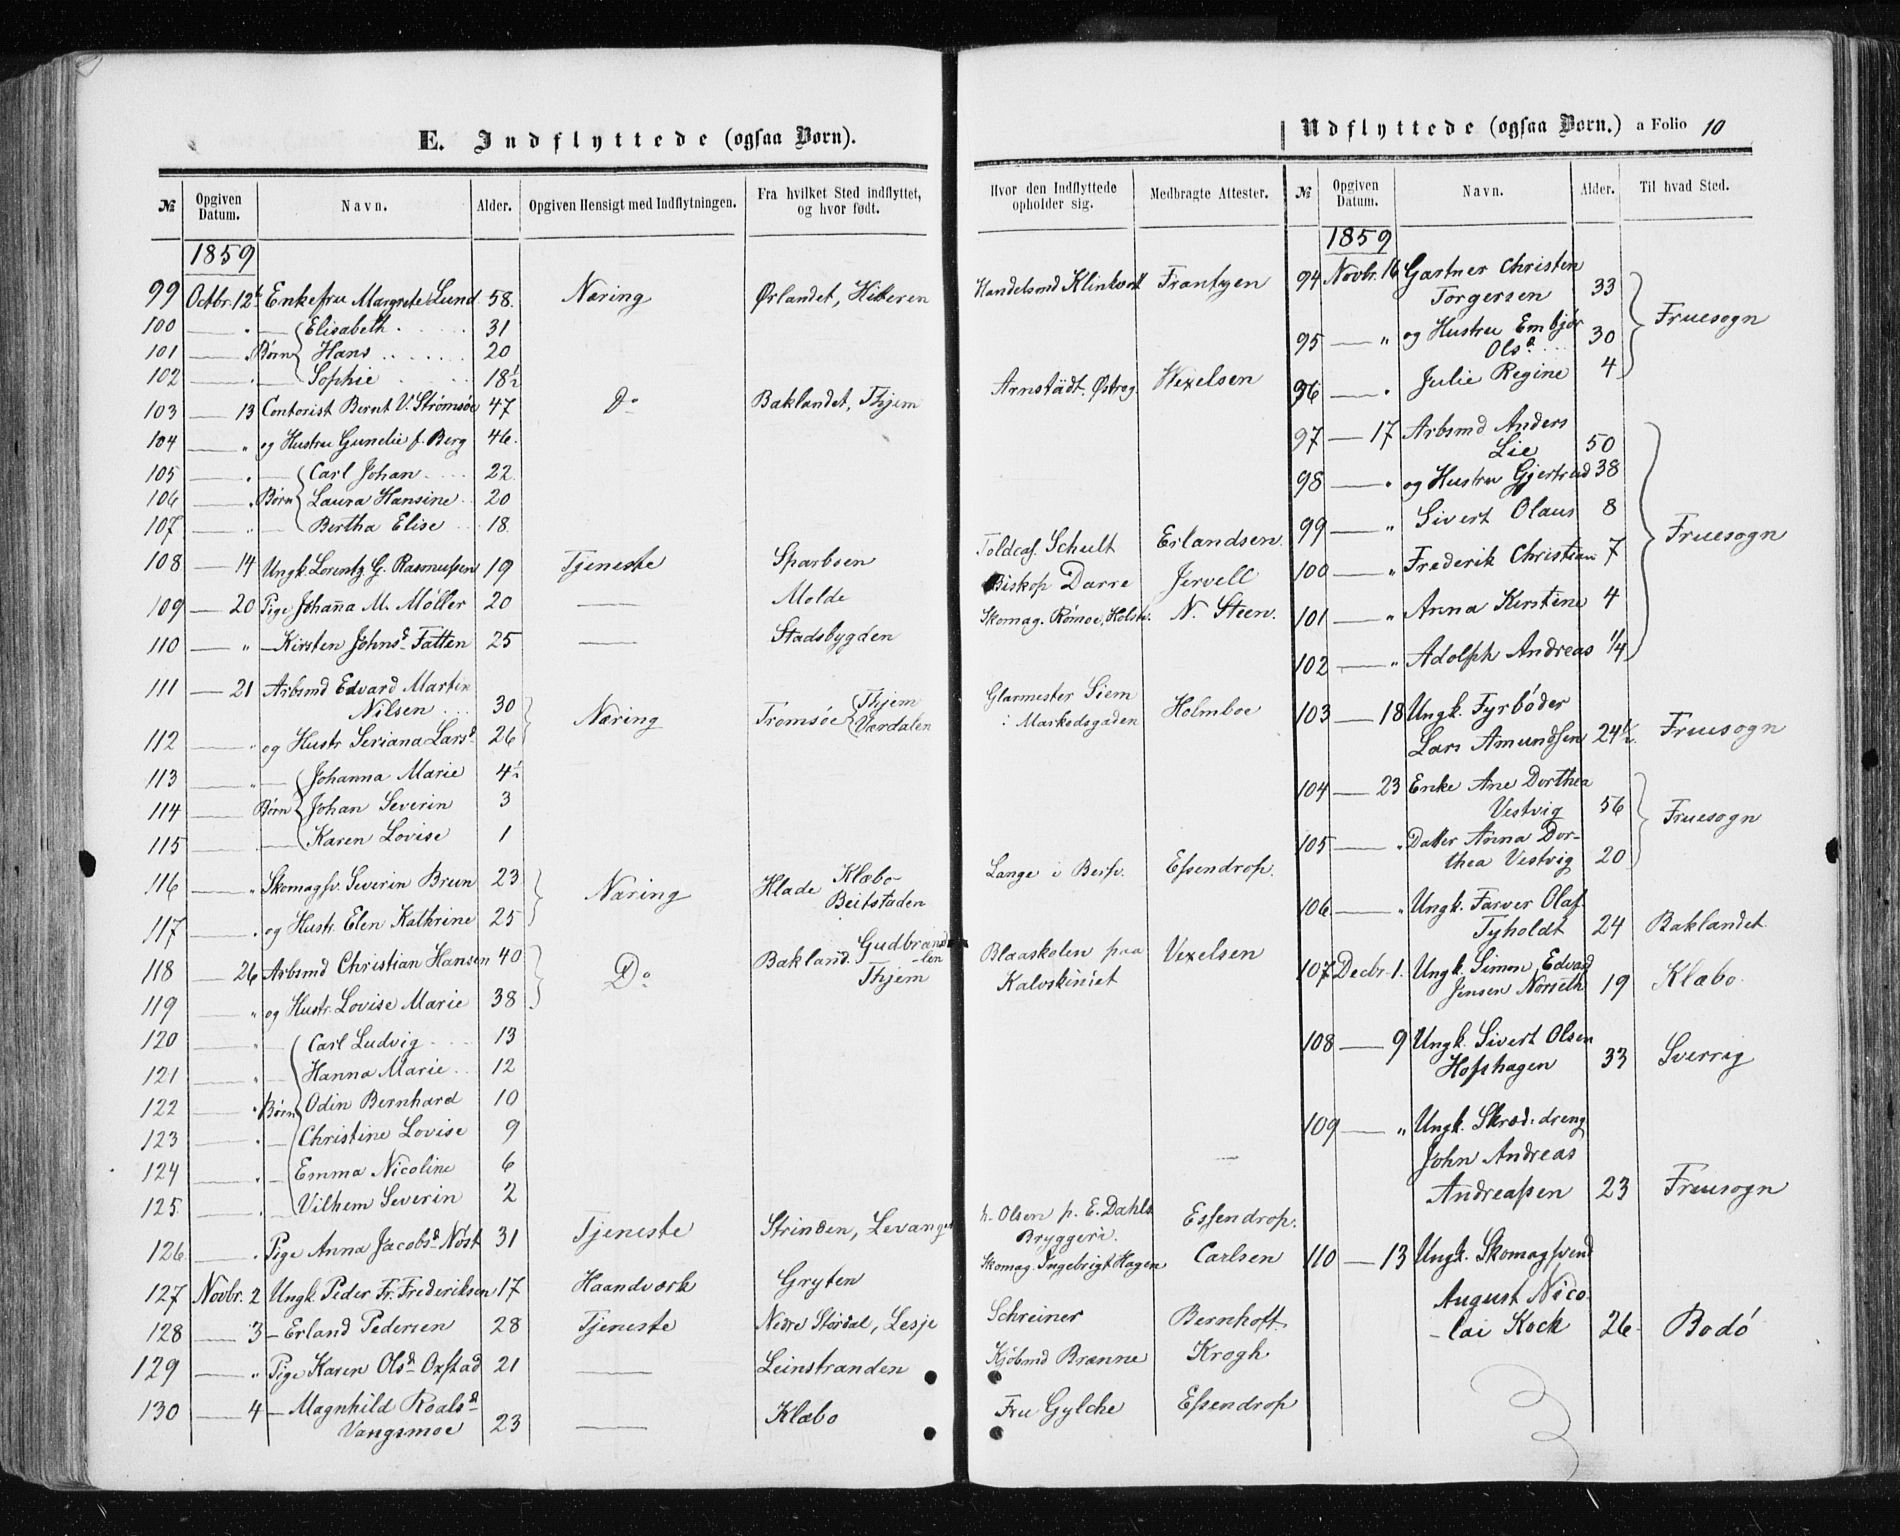 E. Indflyttede (ogsaa Børn).
№ Opgiven Datum. Navn. Alder. Opgiven Hensigt med Indflytningen. Fra hvilket Sted indflyttet, og hvor født.
1859
99 Octbr. 12 Enkefru Margrete Lund 58. Næring Ørlandet, Hitteren
100 — " — Elisabeth 31
101 — " Børn Hans 20
102 — " — Sophie 18½
103 — 13 Contorist Bernt V. Strømsøe 47 Do Baklandet, Thjem
104 — " og Hustru Gunelie f. Berg 46.
105 — " — Carl Johan 22
106 — " Børn Laura Hansine 20
107 — " — Bertha Elise 18
108 — 14 Ungk. Lorentz G. Rasmussen 19 Tjeneste Sparboen
109 — 20 Pige Johanna M. Møller 20 — Molde
110 — " — Kirsten Johnsd. Fatten 25 — Stadsbygden
111 — 21 Arbsmd Edvard Martin
Nilsen 30 Næring Tromsøe Thjem
112 — " og Hustr Seriana Larsd. 26 Værdalen
113 — " — Johanna Marie 4½
114 — " Børn Johan Severin 3
115 — " — Karen Lovise 1
116 — " Skomagsv. Severin Brun 23 Næring Hlade Klæbo
117 — " og Hustr. Elen Kathrine 25 Beitstaden
118 — 26 Arbsmd Christian Hansen 40 Do Bakland. Gudbrand-len
119 — " og Hustr. Lovise Marie 38 Thjem
120 — " — Carl Ludvig 13
121 — " — Hanna Marie 12
122 — " Børn Odin Bernhard 10
123 — " — Christine Lovise 9
124 — " — Emma Nicoline 6
125 — " — Vilhem Severin 2
126 — " Pige Anna Jacobsd. Nøst 31 Tjeneste Strinden, Levanger
127 Novbr. 2 Ungk. Peder Fr. Frederiksen 17 Haandværk Gryten
128 — 3 — Erland Pedersen 28 Tjeneste Nedre Stördal, Lesje
129 — " Pige Karen Olsd. Oxstad 21 — Leinstranden
130 — 4 — Magnhild Roalsd.
Vangsmoe 23 — Klæbo
Hvor den Indflyttede opholder sig. Medbragte Attester.
Handelsmd Klintvort Frantzen
Arnstädt. Østreg. Wexelsen
Toldcas. Schult Erlandsen.
Biskop Darre Jervell
Skomag. Rømoe, Holstv. N. Steen.
Glarmester Siem
i Markedsgaden Holmboe
Lange i Bersv. Essendrop.
Blaaskolen paa Vexelsen
Kalvskinnet
h. Olsen p. E. Dahls Essendrop.
Bryggeri.
Skomag. Ingebrigt Hagen Carlsen
Schreiner Bernhoft.
Kjöbmd Brænne Krogh
Fru Gylche Essendrop
Udflyttede (ogsaa Børn.) a Folio 10
№ Opgiven Datum. Navn. Alder. Til hvad Sted.
1859
94 Novbr. 16 Gartner Christen
Torgersen 33 Fruesogn
95 — " og Hustru Embjør
Olsd. 30
96 — " Julie Regine 4
97 — 17 Arbsmd Anders
Lie 50
98 — " og Hustru Gjertrud 38
99 — " Sivert Olaus 8 Fruesogn
100 — " Frederik Christian 7
101 — " Anna Kirstine 4
102 — " Adolph Andreas 1/4
103 — 18 Ungk. Fyrbøder
Lars Amundsen 24½ Fruesogn
104 — 23 Enke Ane Dorthea
Vestvig 56 Fruesogn
105 — " Datter Anna Dor-
thea Vestvig 20
106 — " Ungk. Farver Olaf
Tyholdt 24 Baklandet
107 Decbr. 1. Ungk. Simon Edvard
Jensen Norseth 19 Klæbo.
108 — 9 Ungk. Sivert Olsen
Hofshagen 33 Sverrig
109 — " Ungk. Skræd. dreng
John Andreas
Andreassen 23 Fruesogn
110 — 13 Ungk. Skomagsvend
August Nico-
lai Kock 26 Bodö